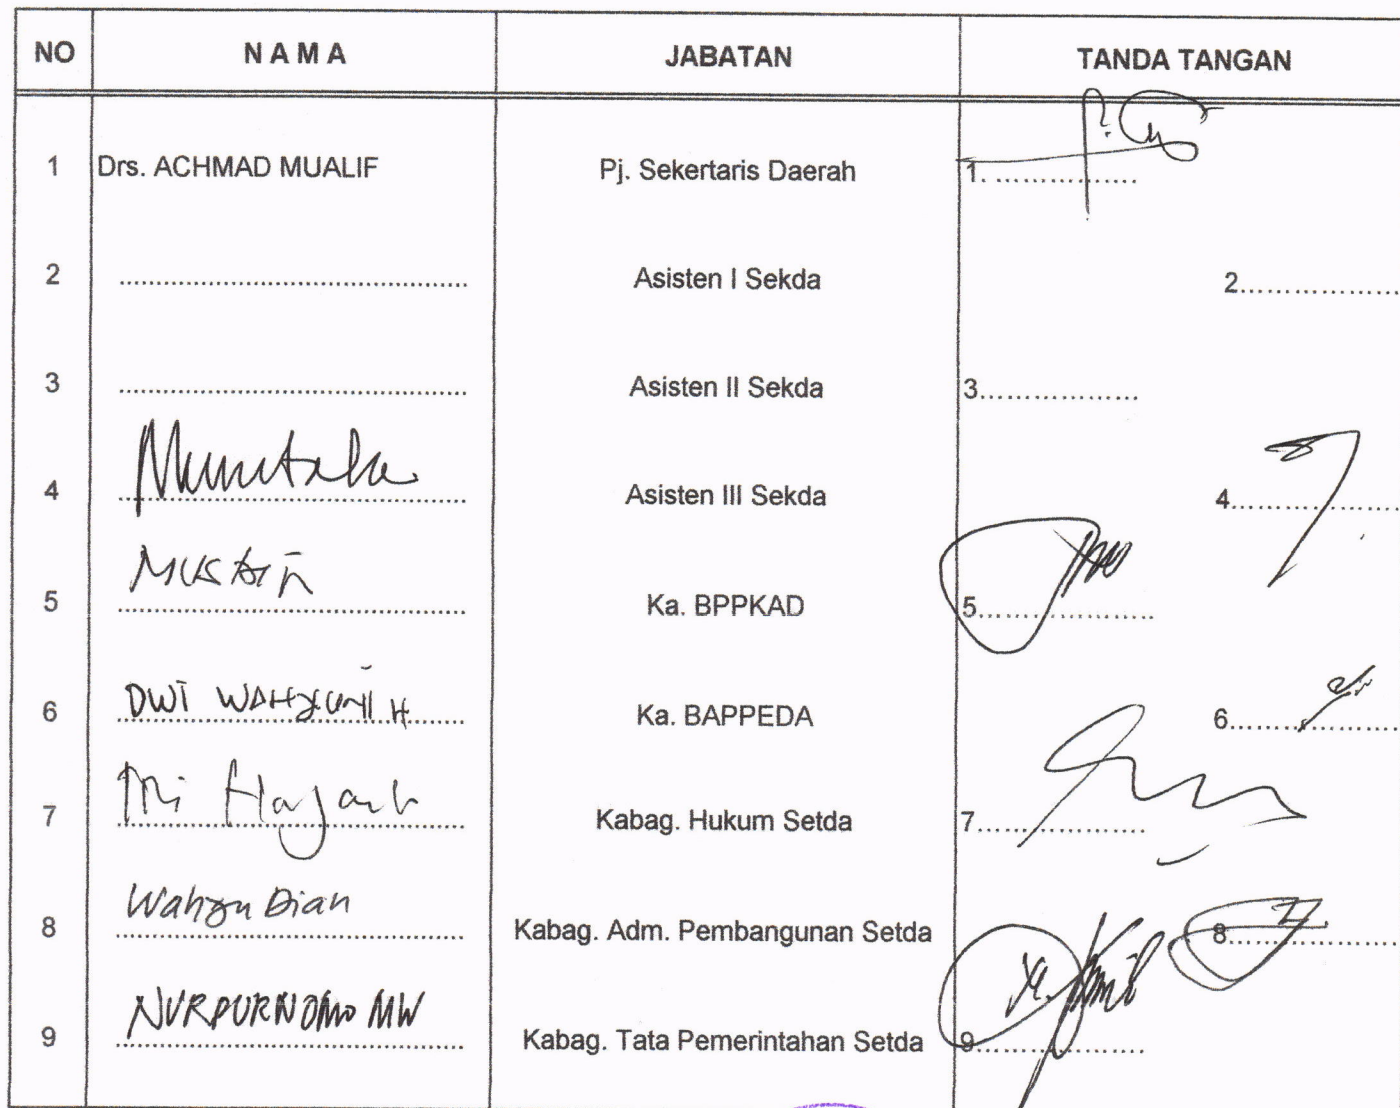 NO NAMA JABATAN TANDA TANGAN
1 Drs. ACHMAD MUALIF Pj. Sekertaris Daerah 1. ................
2 ........................................ Asisten I Sekda 2..................
3 ........................................ Asisten II Sekda 3..................
4 ........................................ Asisten III Sekda 4..................
5 ........................................ Ka. BPPKAD 5..................
6 DWI WAHYUNI H Ka. BAPPEDA 6..................
7 Tri Hajarh Kabag. Hukum Setda 7..................
8 Wahyu Dian Kabag. Adm. Pembangunan Setda 8..................
9 NURPURNOMO MW Kabag. Tata Pemerintahan Setda 9..................